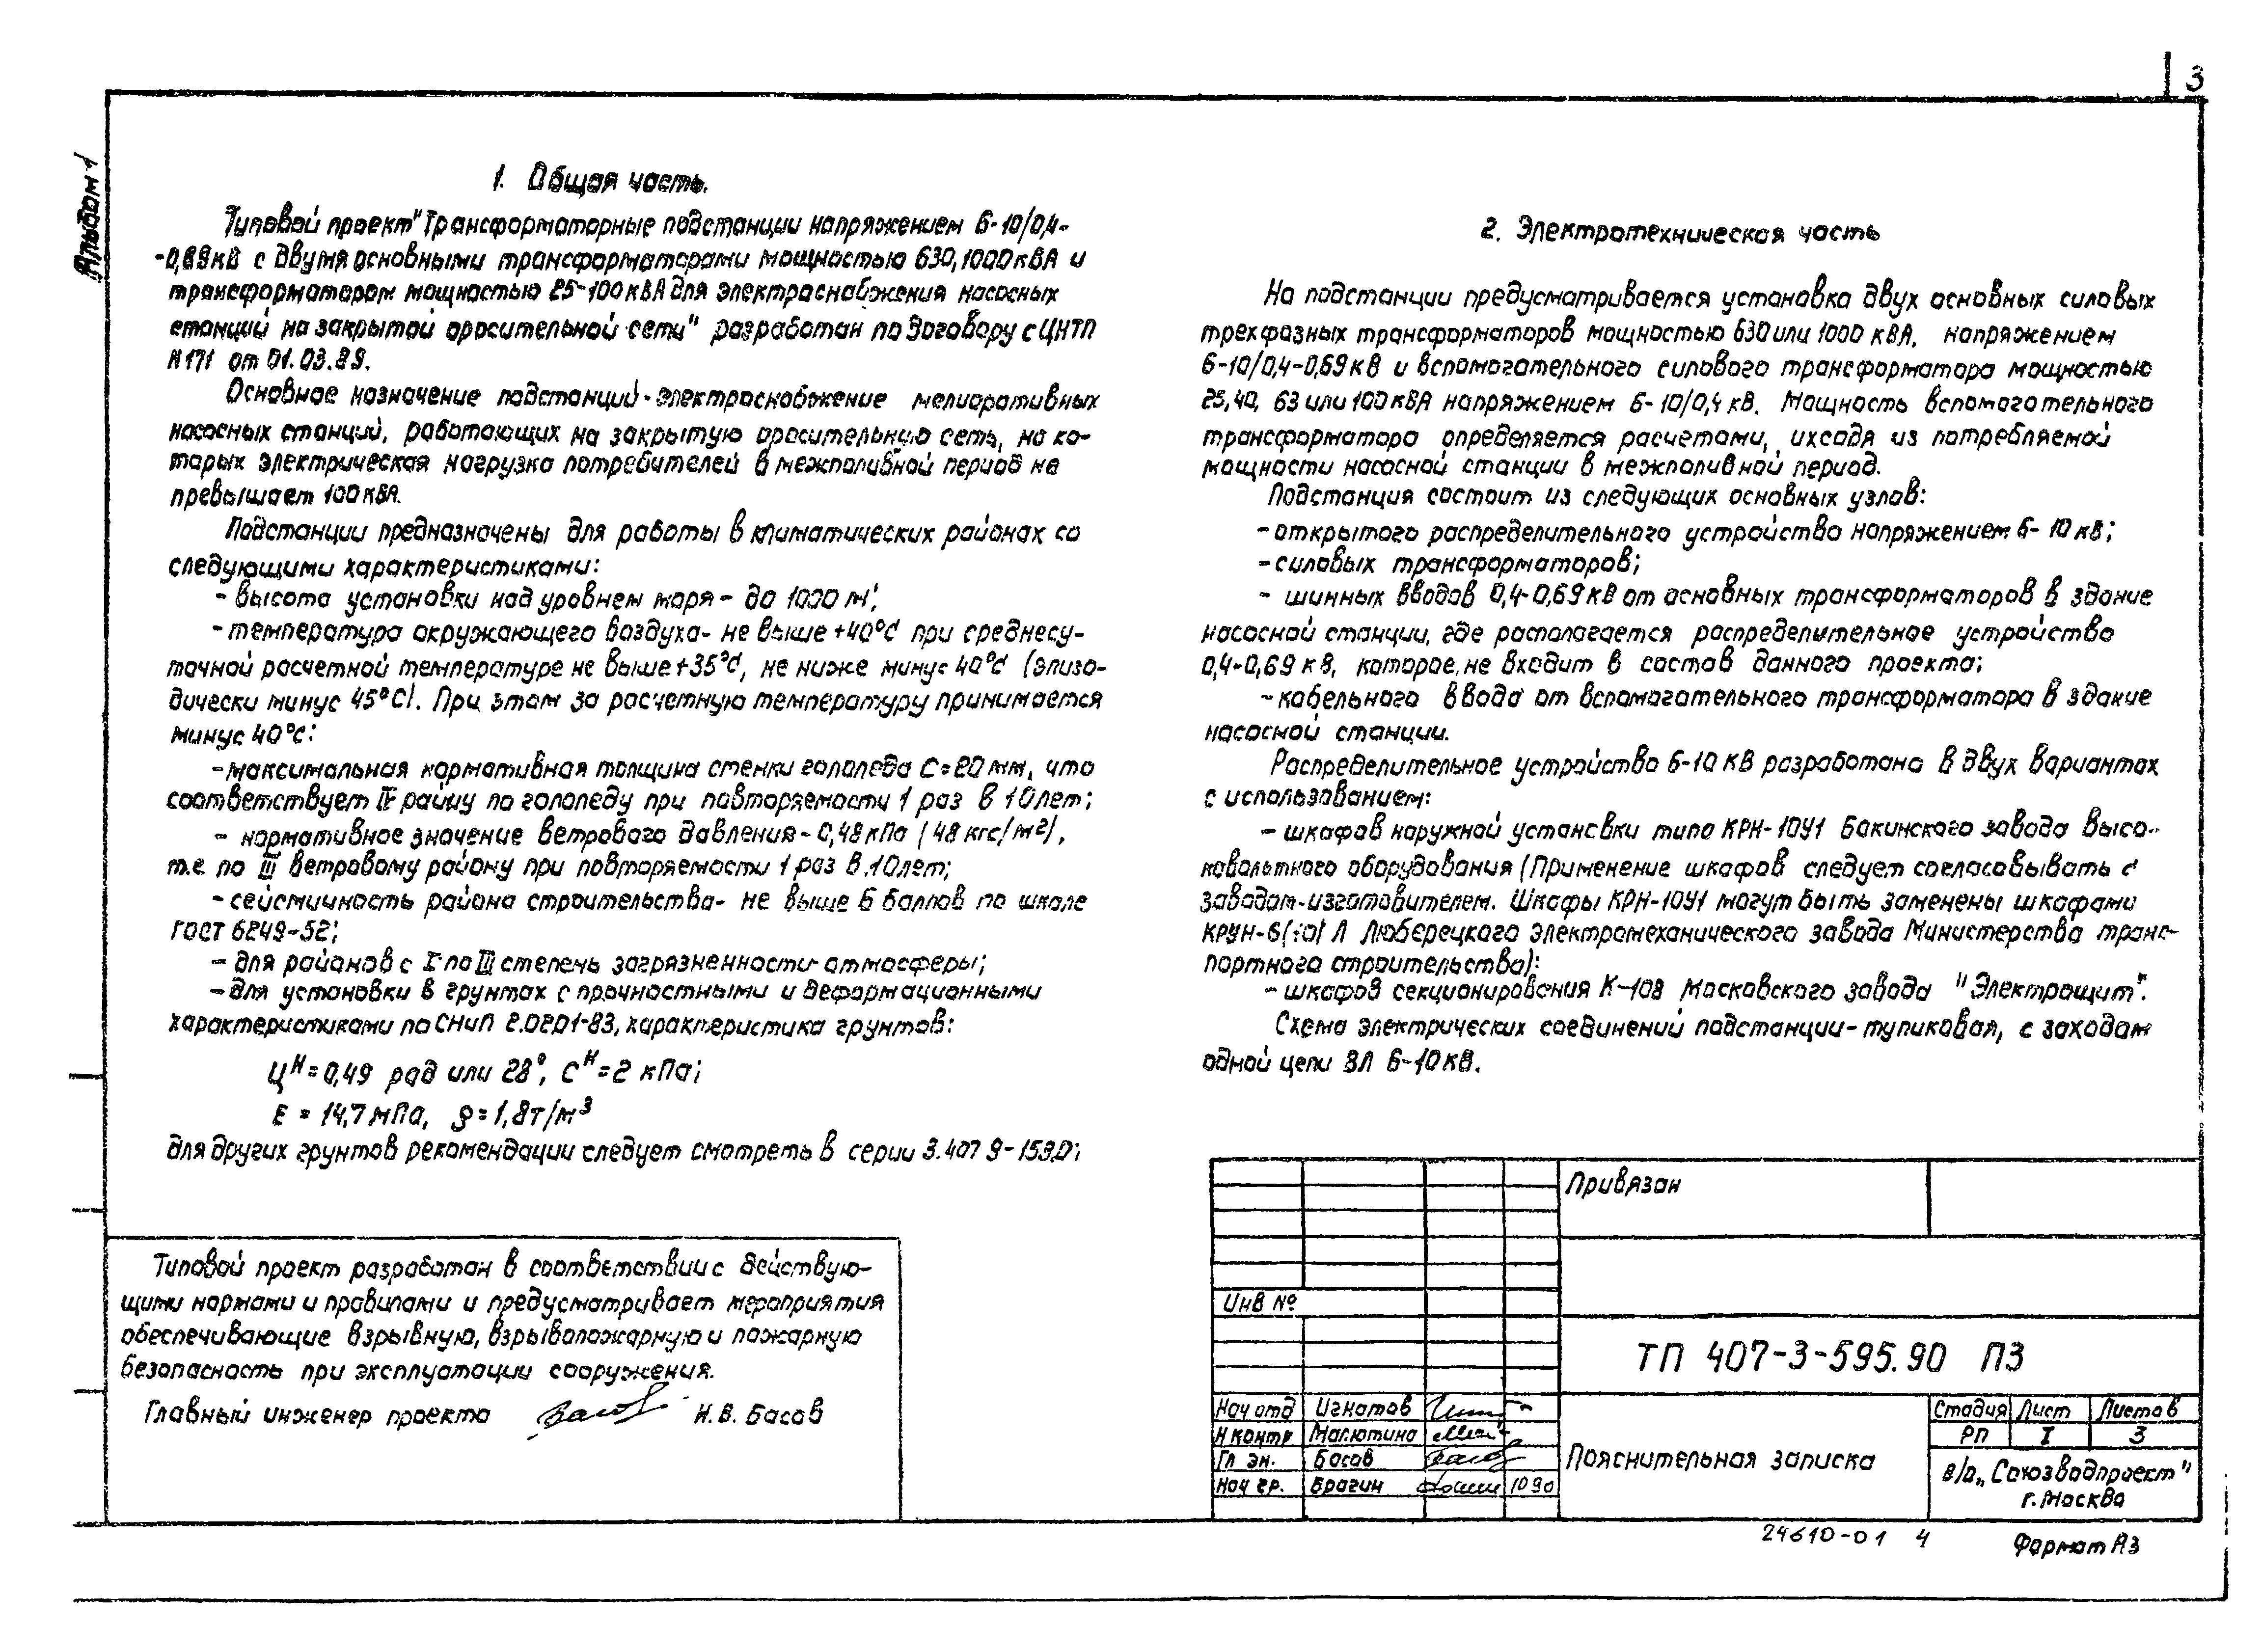 3
Альбом 1
1. Общая часть.
Типовой проект "Трансформаторные подстанции напряжением 6-10/0,4-
-0,69 кВ с двумя основными трансформаторами мощностью 630, 1000 кВА и
трансформатором мощностью 25-100 кВА для электроснабжения насосных
станций на закрытой оросительной сети" разработан по договору с ЦНТП
N 171 от 01.03.89.
Основное назначение подстанций - электроснабжение мелиоративных
насосных станций, работающих на закрытую оросительную сеть, на ко-
торых электрическая нагрузка потребителей в межполивной период не
превышает 100 кВА.
Подстанции предназначены для работы в климатических районах со
следующими характеристиками:
- высота установки над уровнем моря - до 1000 м;
- температура окружающего воздуха - не выше +40°С при среднесу-
точной расчетной температуре не выше +35°С, не ниже минус 40°С (эпизо-
дически минус 45°С). При этом за расчетную температуру принимается
минус 40°С;
- максимальная нормативная толщина стенки гололеда С=20 мм, что
соответствует IV району по гололеду при повторяемости 1 раз в 10 лет;
- нормативное значение ветрового давления - 0,48 кПа (48 кгс/м²),
т.е. по III ветровому району при повторяемости 1 раз в 10 лет;
- сейсмичность района строительства - не выше 6 баллов по шкале
ГОСТ 6249-52;
- для районов с I по III степень загрязненности атмосферы;
- для установки в грунтах с прочностными и деформационными
характеристиками по СНиП 2.02.01-83, характеристика грунтов:
Цᴴ = 0,49 рад или 28°, Сᴴ = 2 кПа;
Е = 14,7 мПа, ρ = 1,8 т/м³
для других грунтов рекомендации следует смотреть в серии 3.407.9-153.0;
Типовой проект разработан в соответствии с действую-
щими нормами и правилами и предусматривает мероприятия
обеспечивающие взрывную, взрывопожарную и пожарную
безопасность при эксплуатации сооружения.
Главный инженер проекта Н.В. Басов
2. Электротехническая часть
На подстанции предусматривается установка двух основных силовых
трехфазных трансформаторов мощностью 630 или 1000 кВА, напряжением
6-10/0,4-0,69 кВ и вспомогательного силового трансформатора мощностью
25, 40, 63 или 100 кВА напряжением 6-10/0,4 кВ. Мощность вспомогательного
трансформатора определяется расчетами, исходя из потребляемой
мощности насосной станции в межполивной период.
Подстанция состоит из следующих основных узлов:
- открытого распределительного устройства напряжением 6-10 кВ;
- силовых трансформаторов;
- шинных вводов 0,4-0,69 кВ от основных трансформаторов в здание
насосной станции, где располагается распределительное устройство
0,4-0,69 кВ, которое, не входит в состав данного проекта;
- кабельного ввода от вспомогательного трансформатора в здание
насосной станции.
Распределительное устройство 6-10 кВ разработано в двух вариантах
с использованием:
- шкафов наружной установки типа КРН-10У1 Бакинского завода высо-
ковольтного оборудования (Применение шкафов следует согласовывать с
заводом-изготовителем. Шкафы КРН-10У1 могут быть заменены шкафами
КРУН-6(10)Л Люберецкого электромеханического завода Министерства транс-
портного строительства);
- шкафов секционирования К-108 Московского завода "Электрощит".
Схема электрических соединений подстанции - тупиковая, с заходом
одной цепи ВЛ 6-10 кВ.
Привязан
Инв №
ТП 407-3-595.90 ПЗ
Нач отд Игнатов
Н контр Малютина
Гл эн. Басов
Нач гр. Брагин 10 90
Пояснительная записка
Стадия Лист Листов
РП 1 3
в/о "Союзводпроект"
г. Москва
24610-01 4
Формат А3